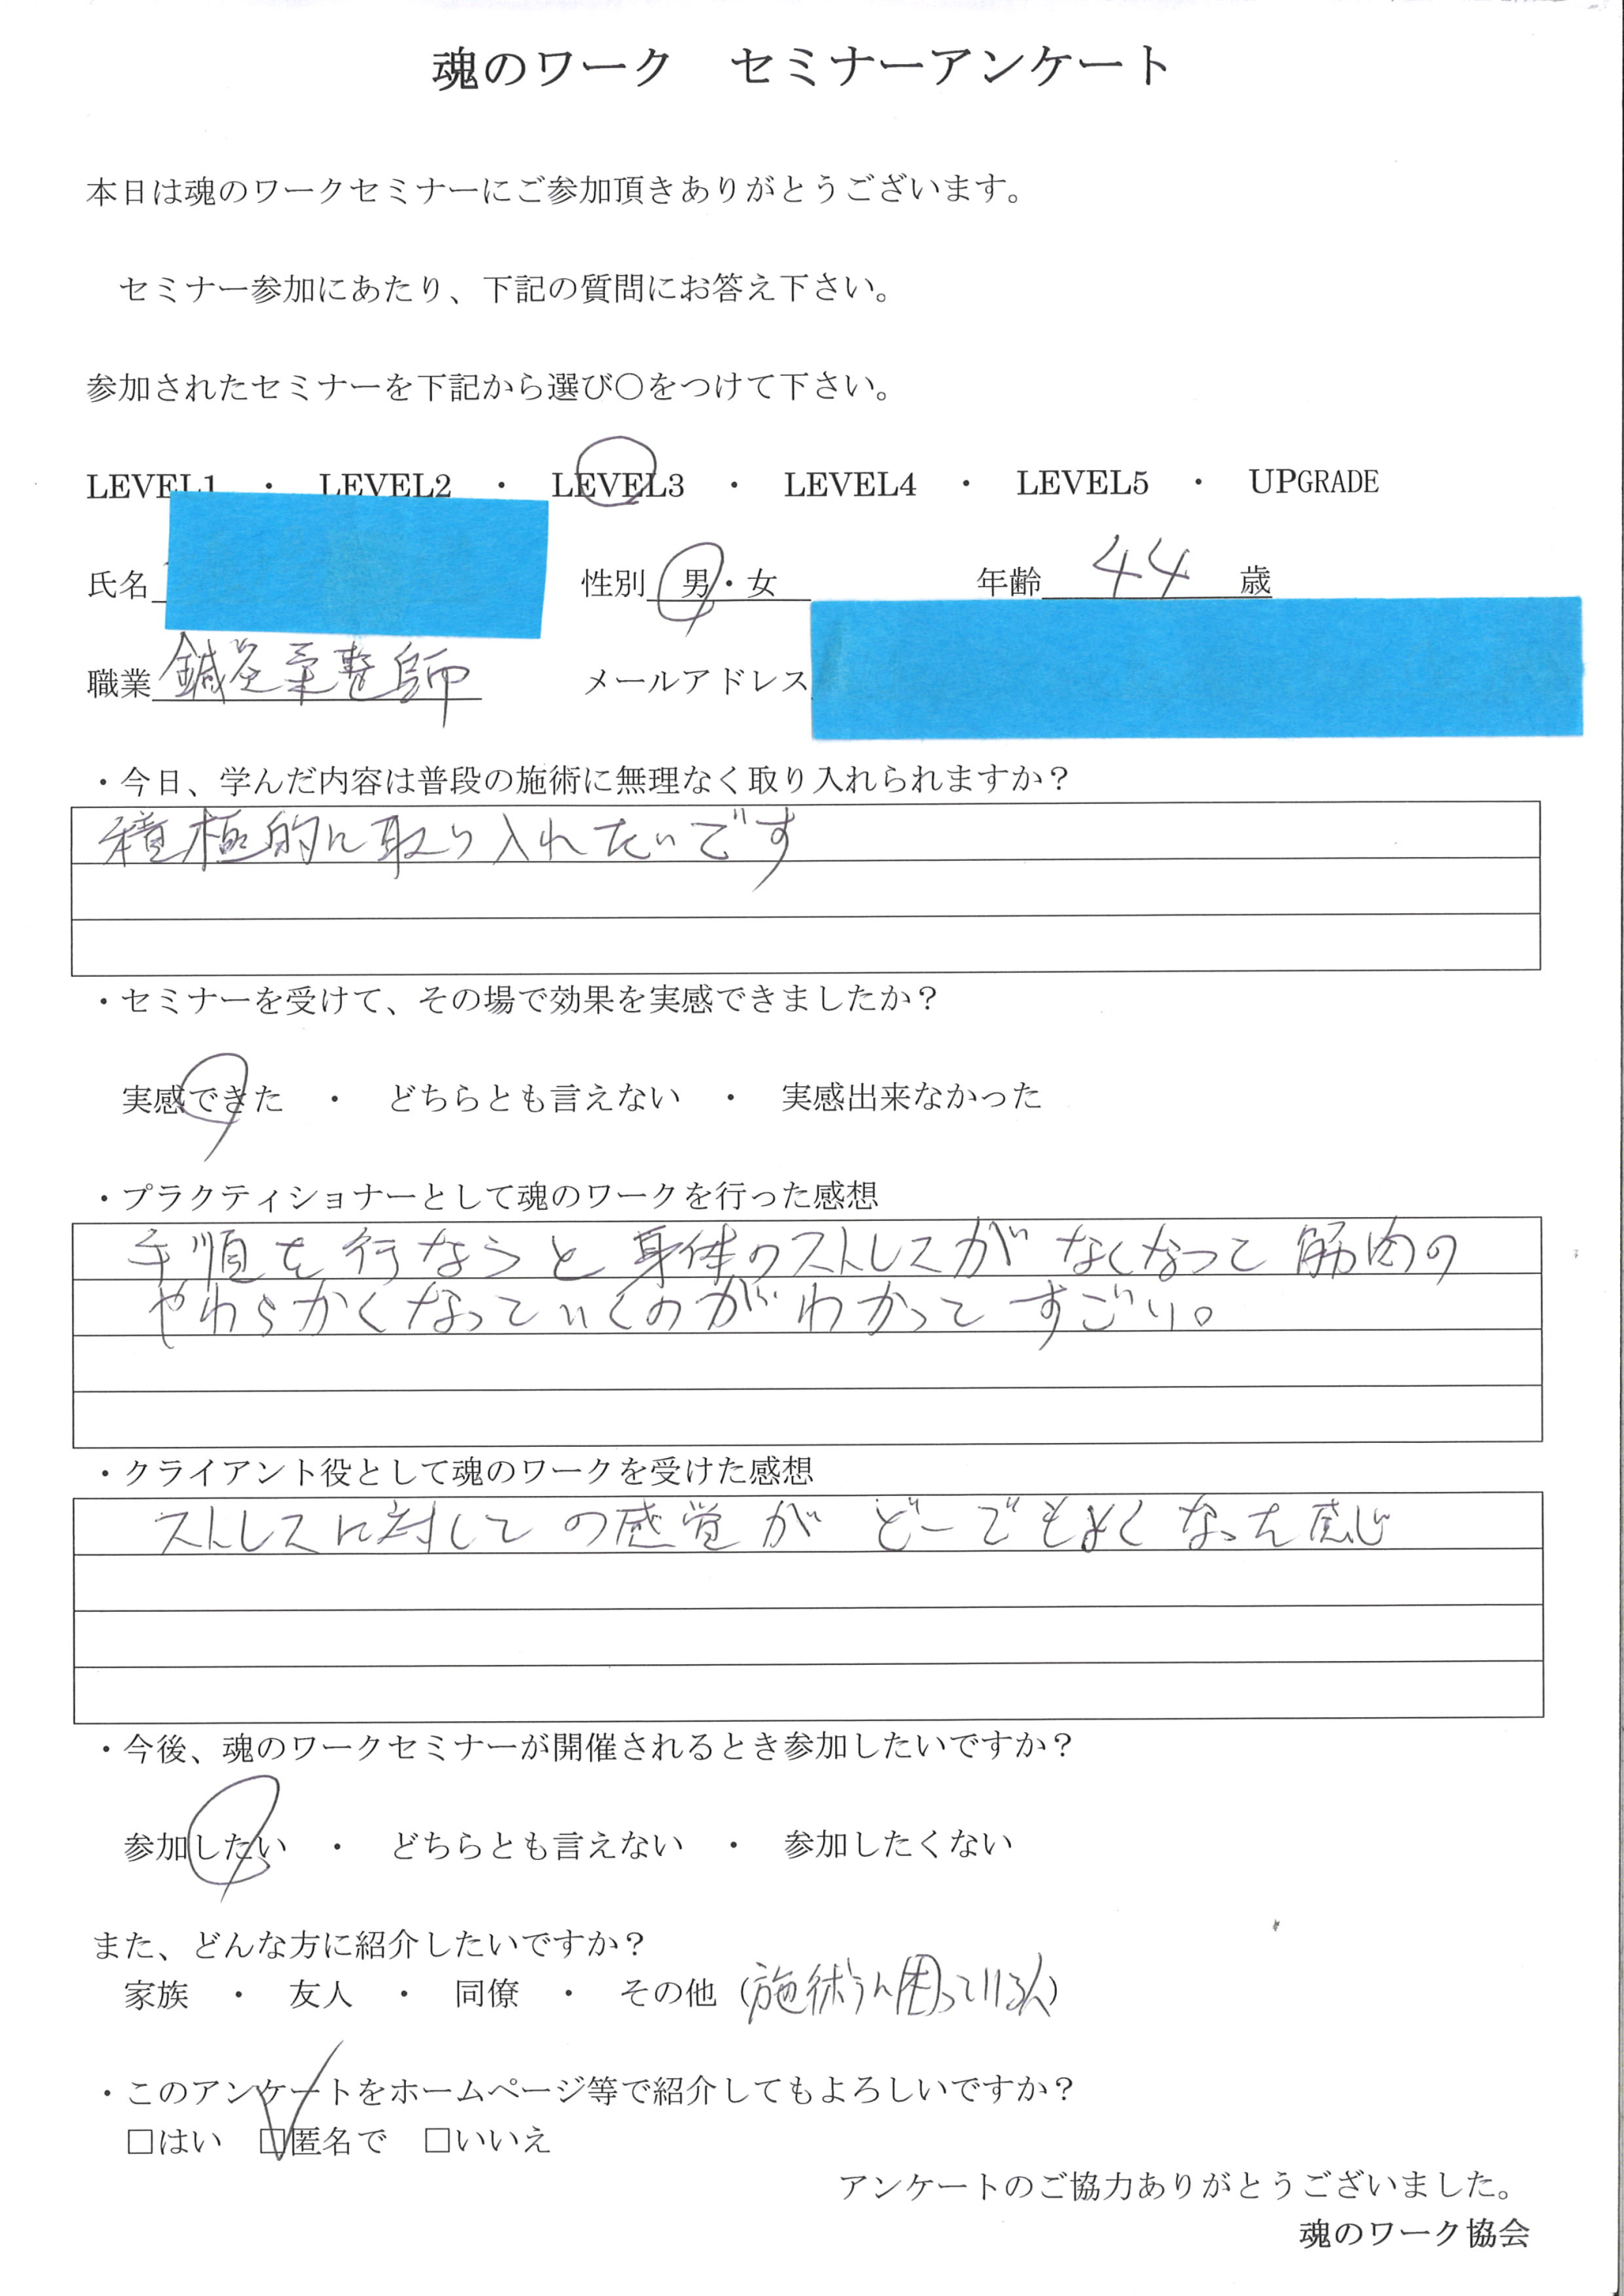 魂のワーク　セミナーアンケート
本日は魂のワークセミナーにご参加頂きありがとうございます。
セミナー参加にあたり、下記の質問にお答え下さい。
参加されたセミナーを下記から選び〇をつけて下さい。
LEVEL1　・　LEVEL2　・　LEVEL3　・　LEVEL4　・　LEVEL5　・　UPGRADE
氏名　性別　男・女　年齢　44　歳
職業　鍼灸柔整師　メールアドレス
・今日、学んだ内容は普段の施術に無理なく取り入れられますか？
積極的に取り入れたいです
・セミナーを受けて、その場で効果を実感できましたか？
実感できた　・　どちらとも言えない　・　実感出来なかった
・プラクティショナーとして魂のワークを行った感想
手順を行なうと身体のストレスがなくなって筋肉の
やわらかくなっていくのがわかってすごい。
・クライアント役として魂のワークを受けた感想
ストレスに対しての感覚がどーでもよくなった感じ
・今後、魂のワークセミナーが開催されるとき参加したいですか？
参加したい　・　どちらとも言えない　・　参加したくない
また、どんな方に紹介したいですか？
家族　・　友人　・　同僚　・　その他（施術 困っている人）
・このアンケートをホームページ等で紹介してもよろしいですか？
□はい　□匿名で　□いいえ
アンケートのご協力ありがとうございました。
魂のワーク協会